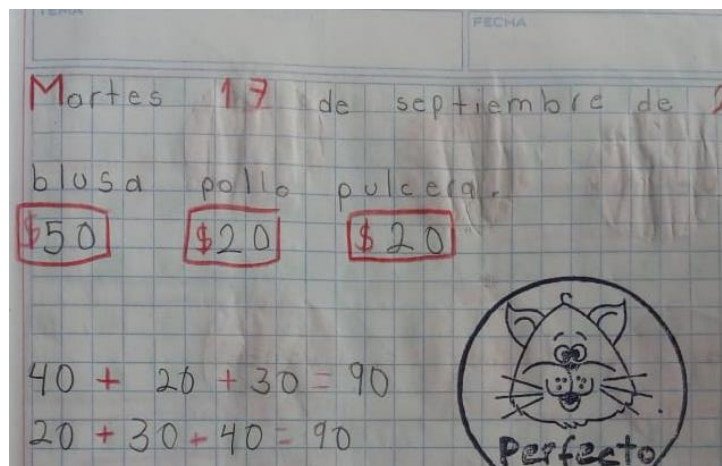 FECHA
Martes 17 de septiembre de
blusa pollo pulcera.
$50 $20 $20
40 + 20 + 30 = 90
20 + 30 + 40 = 90
Perfecto